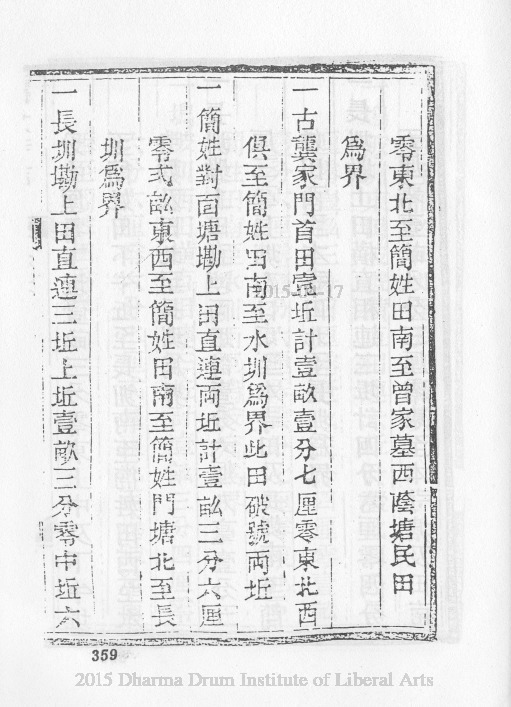 零東北至簡姓田南至曾家墓西蔭塘民田
爲界
一古龔家門首田壹坵計壹畝壹分七厘零東北西
俱至簡姓田南至水圳爲界此田破號両坵
一簡姓對面塘墈上田直連両坵計壹畝三分六厘
零弍畝東西至簡姓田南至簡姓門塘北至長
圳爲界
一長圳墈上田直連三坵上坵壹畝三分零中坵六
359
2015-04-17
2015 Dharma Drum Institute of Liberal Arts